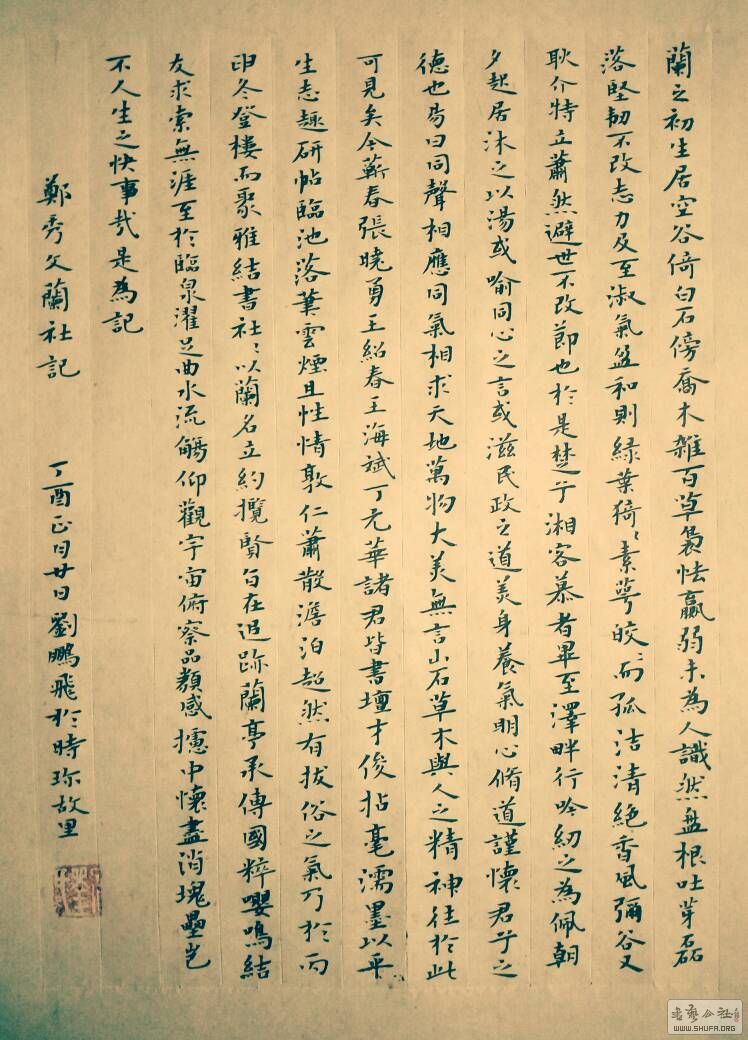 蘭之初生居空谷倚白石傍喬木雜百草裊怯羸弱未為人識然盤根吐芽磊
落堅韌不改志力及至淑氣盈和則緑葉猗〻素萼皎〻而孤洁清絕香風彌谷又
耿介特立蕭然避世不改節也於是楚子湘客慕者畢至澤畔行吟紉之為佩朝
夕起居沐之以湯或喻同心之言或滋民政之道美身養氣明心脩道謹懷君子之
德也易曰同聲相應同氣相求天地萬物大美無言山石草木與人之精神往於此
可見矣今蘄春張曉勇王紹春王海斌丁元華諸君皆書壇才俊拈毫濡墨以平
生志趣研帖臨池落葉雲煙且性情敦仁蕭散澹泊超然有拔俗之氣乃於丙
申冬登樓而聚雅結書社〻以蘭名立約攬賢旨在追跡蘭亭承傳國粹嚶鳴結
友求索無涯至於臨泉濯足曲水流觴仰觀宇宙俯察品類感攄中懷盡消塊壘豈
不人生之快事哉是為記
鄭秀文蘭社記 丁酉正月廿日劉鵬飛於時珍故里
書藝公社
WWW.SHUFA.ORG